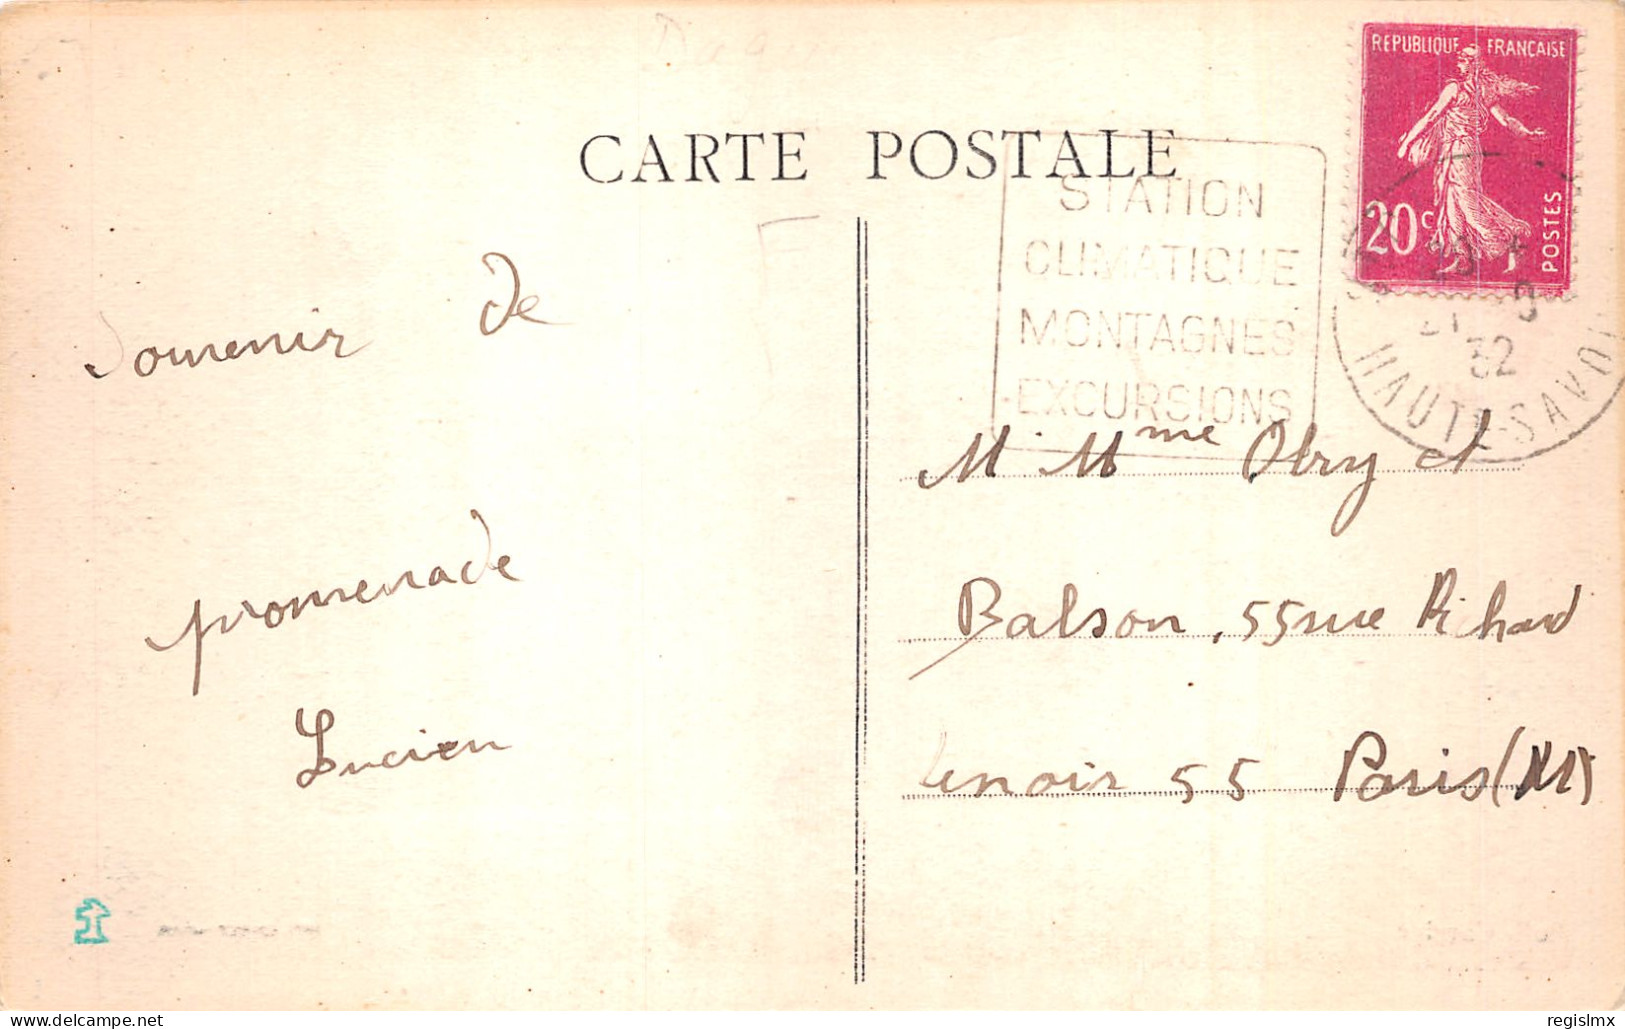 CARTE POSTALE
REPUBLIQUE FRANÇAISE
20c
POSTES
STATION
CLIMATIQUE
MONTAGNES
EXCURSIONS
21 -9
32
HAUTE-SAVOI
Souvenir de
promenade
Lucien
M. Mme Obry et
Balson, 55 rue Richard
Lenoir 55 Paris (XI)
delcampe.net
regislmx